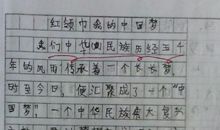 红领巾我的中国梦
我们中华民族历经五千
年的风雨传承着一个长长梦,
时至今日,便汇聚成了一个“中
国梦”,一个中华民族伟大复兴